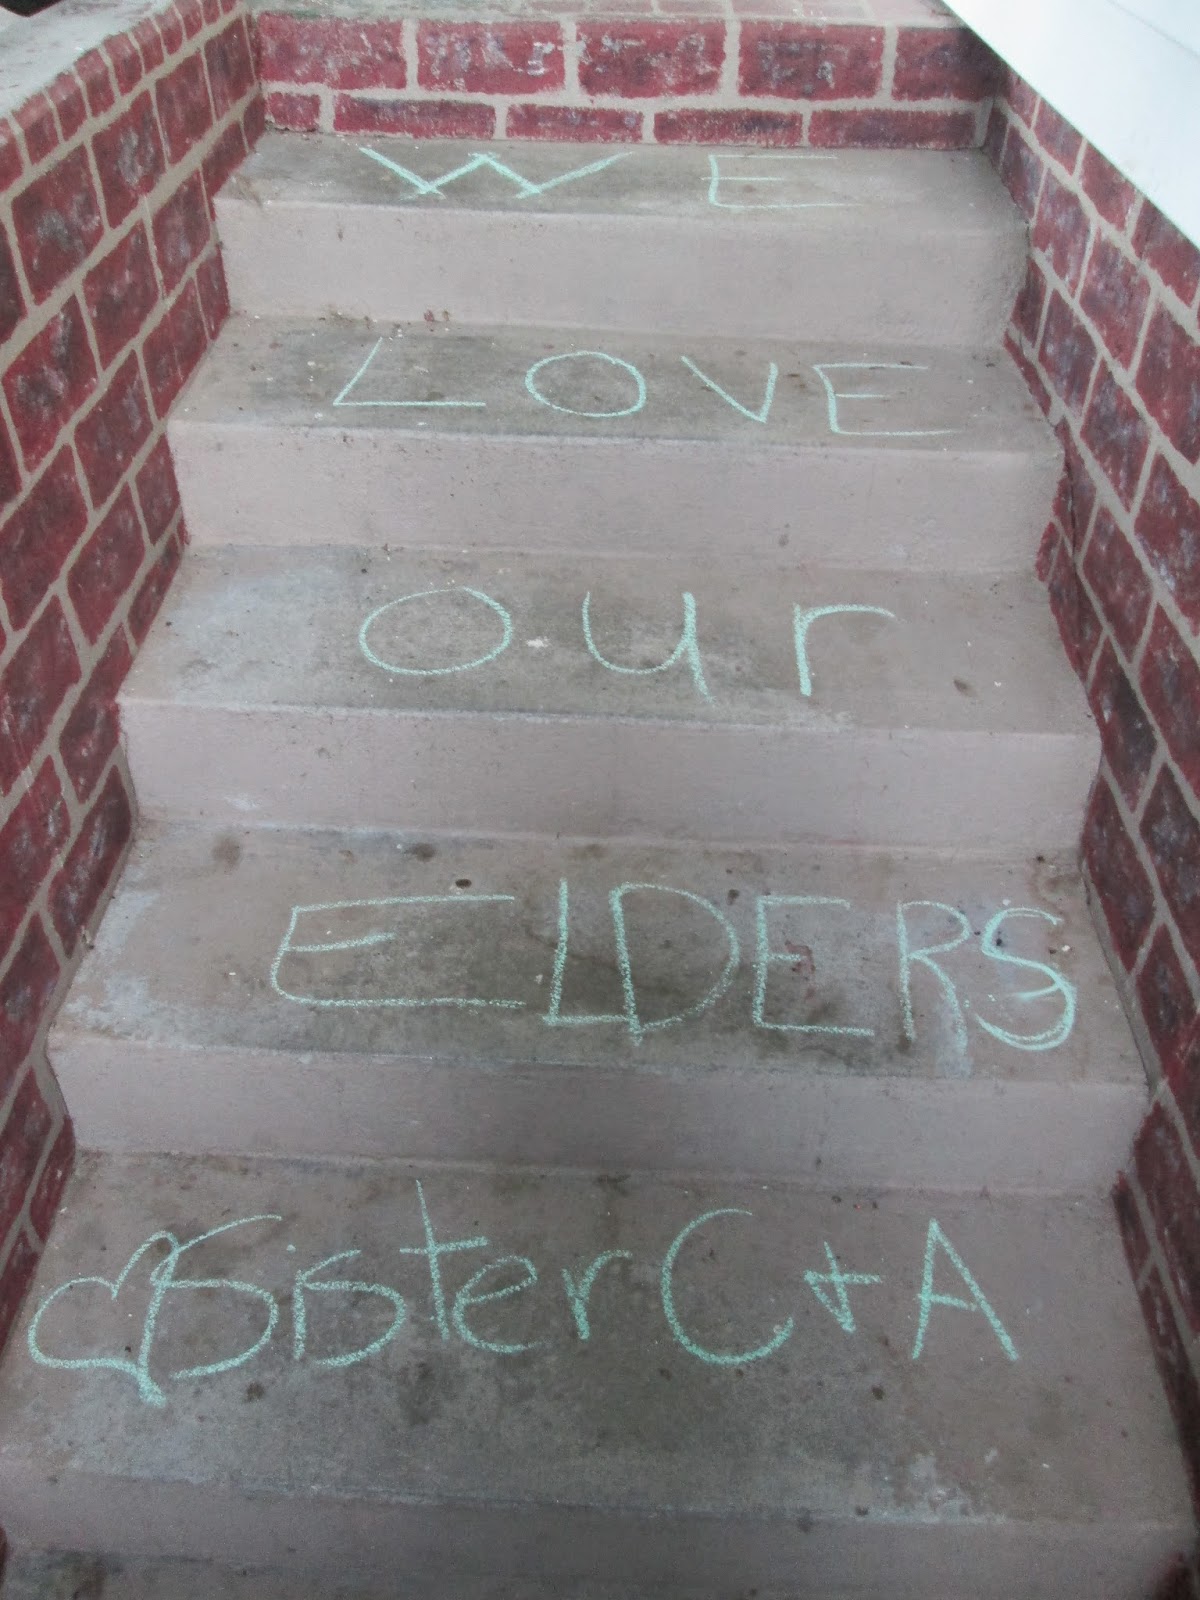 WE
LOVE
our
ELDERS
♡ Sister C + A